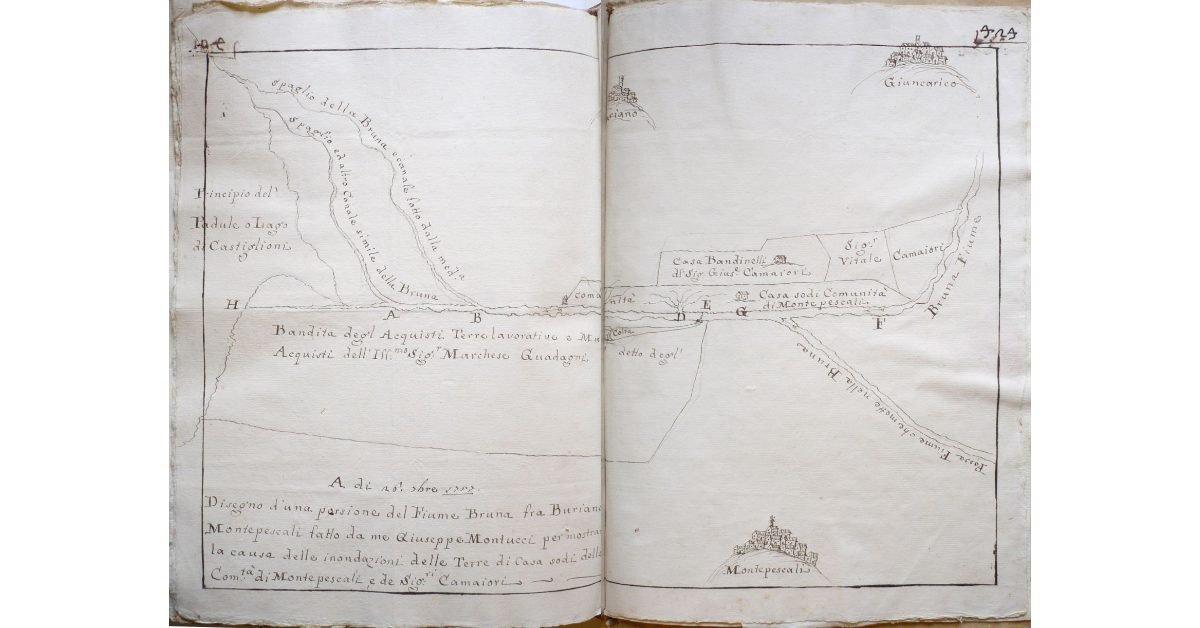 Giuncarico
Spaglio della Bruna e canale fatto dalla med.a
Spaglio ed altro Canale simile della Bruna
Principio del
Padule o Lago
di Castiglioni
H
A
B
D
E
G
F
Casa Bandinelli
d Sig. Gius.e Camaiori
Sig.r
Vitale
Camaiori
Casa sodi Comunità
di Montepescali
Bruna Fiume
Bandita degl Acquisti Terre lavoratine e
Acquisti dell'Ill.mo Sig.r Marchese Guadagni
detto degl'
Fossa Fiume che mette nella Bruna
A di 16. 7bre
Disegno d'una porsione del Fiume Bruna fra Buriano
Montepescali fatto da me Giuseppe Montucci per mostrar
la causa delle inondazioni delle Terre di Casa sodi delle
Com.tà di Montepescali, e de Sig.ri Camaiori
Montepescali